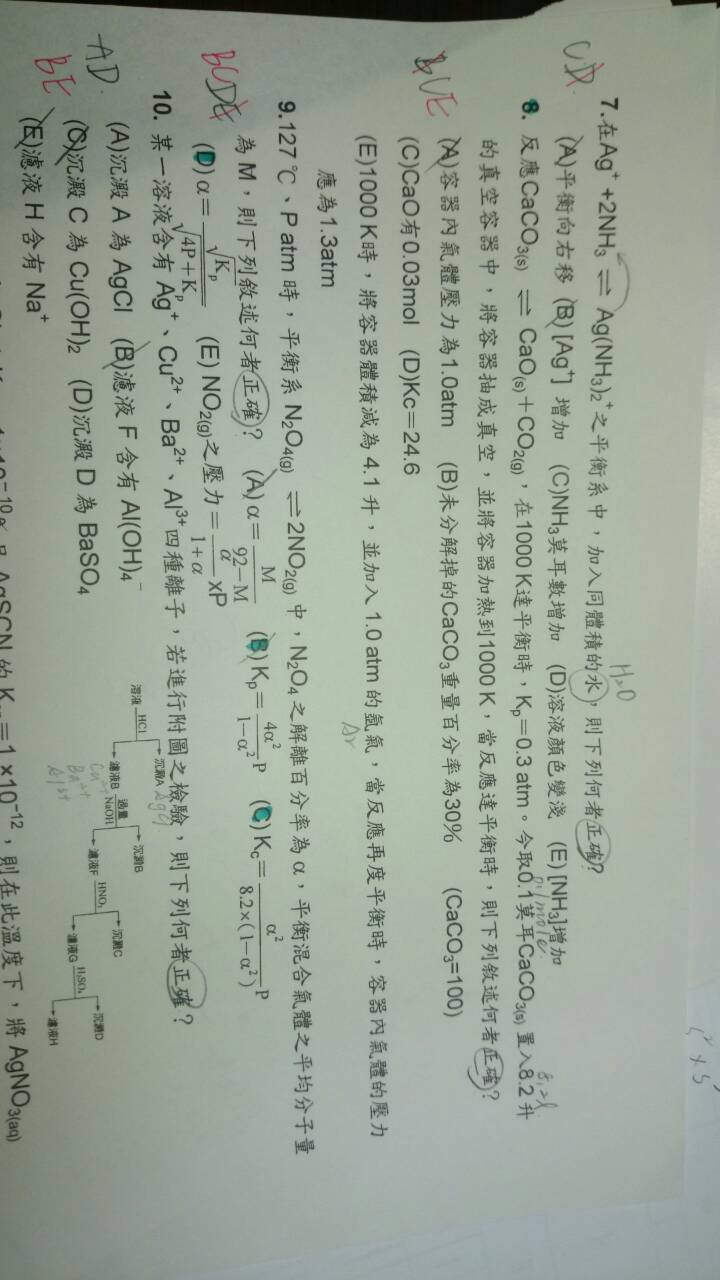 7.在Ag⁺+2NH₃ ⇌ Ag(NH₃)₂⁺之平衡系中，加入同體積的水，則下列何者正確?
H₂O
CD
(A)平衡向右移 (B)[Ag⁺] 增加 (C)NH₃莫耳數增加 (D)溶液顏色變淺 (E)[NH₃]增加
8. 反應CaCO₃(s) ⇌ CaO(s)+CO₂(g)，在1000 K達平衡時，Kp=0.3 atm。今取0.1莫耳CaCO₃(s)置入8.2升
0.1mole
8.2l
的真空容器中，將容器抽成真空，並將容器加熱到1000 K，當反應達平衡時，則下列敘述何者正確?
BCE
(A)容器內氣體壓力為1.0atm (B)未分解掉的CaCO₃重量百分率為30% (CaCO₃=100)
(C)CaO有0.03mol (D)Kc=24.6
(E)1000 K時，將容器體積減為 4.1 升，並加入 1.0 atm 的氬氣，當反應再度平衡時，容器內氣體的壓力
Ar
應為1.3atm
9.127℃、P atm 時，平衡系 N₂O₄(g) ⇌2NO₂(g)中，N₂O₄之解離百分率為α，平衡混合氣體之平均分子量
為 M，則下列敘述何者正確? (A)α=M/(92−M) (B)Kp=4α²/(1−α²)P (C)Kc=α²/(8.2×(1−α²))P
BCDE
(D)α=√Kp/√(4P+Kp) (E) NO₂(g)之壓力=α/(1+α)xP
10. 某一溶液含有 Ag⁺、Cu²⁺、Ba²⁺、Al³⁺四種離子，若進行附圖之檢驗，則下列何者正確？
AD
BE
(A)沉澱 A 為 AgCl (B)濾液 F 含有 Al(OH)₄⁻
(C)沉澱 C 為 Cu(OH)₂ (D)沉澱 D 為 BaSO₄
(E)濾液 H 含有 Na⁺
溶液 HCl 沉澱A AgCl
濾液B 過量 NaOH 沉澱B
Cu²⁺
Ba²⁺
Al³⁺
濾液F HNO₃ 沉澱C
濾液G H₂SO₄ 沉澱D
濾液H
AgSCN 的 K =1 ×10⁻¹²，則在此溫度下，將 AgNO₃(aq)